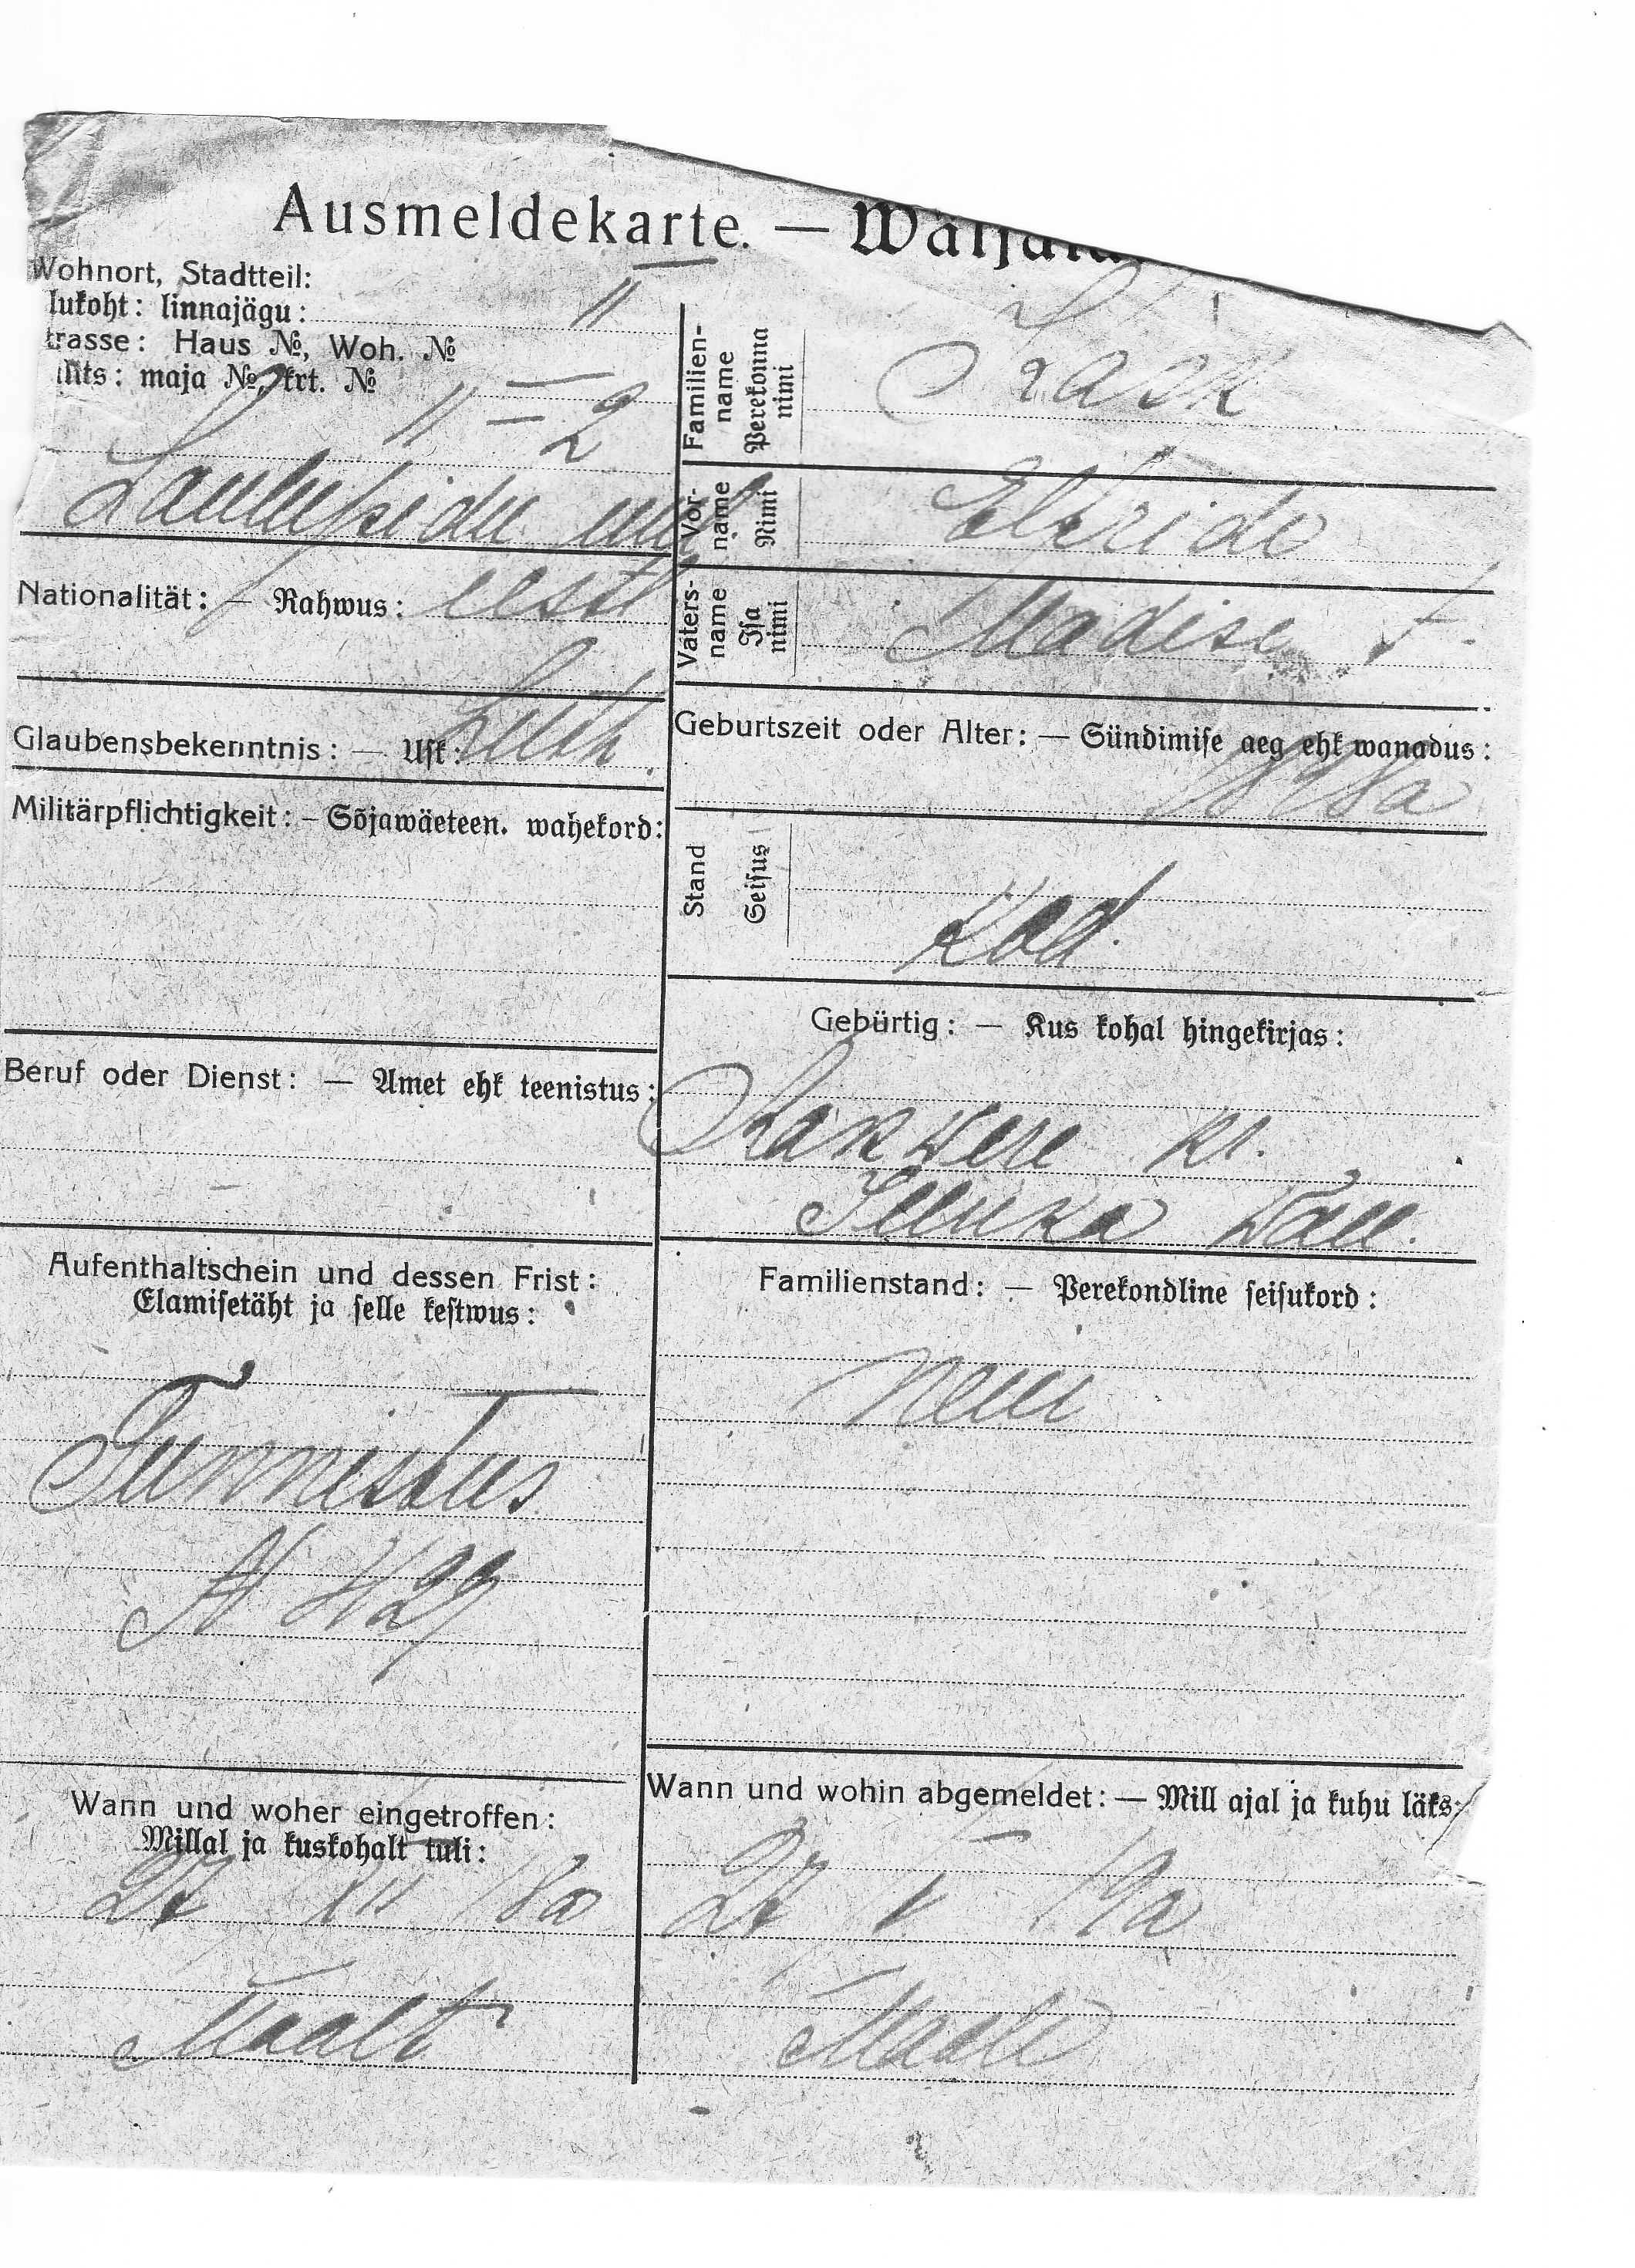 Ausmeldekarte. —
Wohnort, Stadtteil:
lukoht: linnajägu: II
trasse: Haus №, Woh. №
its: maja №, krt. №
11 — 2
Laulupidu
Nationalität: — Rahwus: eesti
Glaubensbekenntnis: — Usk: Luth.
Militärpflichtigkeit: – Sõjawäeteen. wahekord:
Beruf oder Dienst: — Amet ehk teenistus:
Aufenthaltschein und dessen Frist:
Elamisetäht ja selle kestwus:
Tunnistus
Wann und woher eingetroffen:
Millal ja kuskohalt tuli:
27 XII 18a
Maalt
Familien-
name
Perekonna
nimi
Kask
Vor-
name
Nimi
Elfride
Vaters-
name
Isa
nimi
Madise t.
Geburtszeit oder Alter: — Sündimise aeg ehk wanadus:
Stand
Seisus
Gebürtig: — Kus kohal hingekirjas:
Rakwere kr.
Familienstand: — Perekondline seisukord:
Wann und wohin abgemeldet: — Mill ajal ja kuhu läks:
27 V 19a
Maale